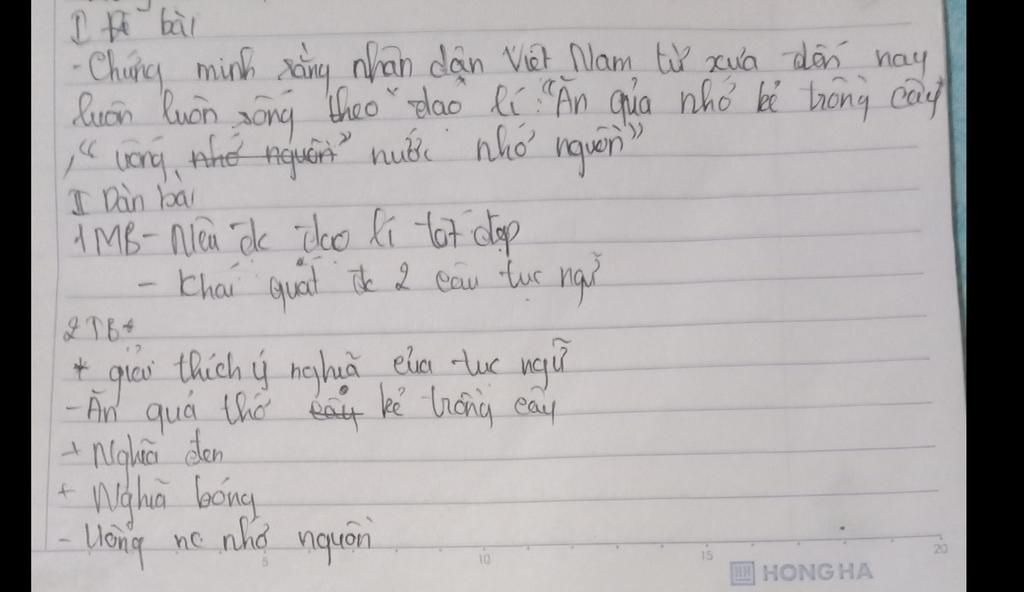 I Đề bài
- Chứng minh rằng nhân dân Việt Nam từ xưa đến nay
luôn luôn sống theo đạo lí: "Ăn qủa nhớ kẻ trồng cây"
, "uống nhớ nguồn" nước nhớ nguồn"
II Dàn bài
1 MB - Nêu đc đạo lí tốt đẹp
- Khái quát đc 2 câu tục ngữ
2 TB:
* giải thích ý nghĩa của tục ngữ
- Ăn quả thớ cây kẻ trồng cây
+ Nghĩa đen
+ Nghĩa bóng
- Uống nc nhớ nguồn
5 10 15 20
HH HONG HA